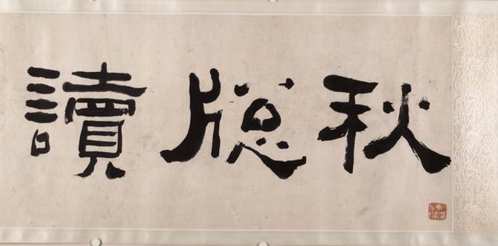 秋牕讀